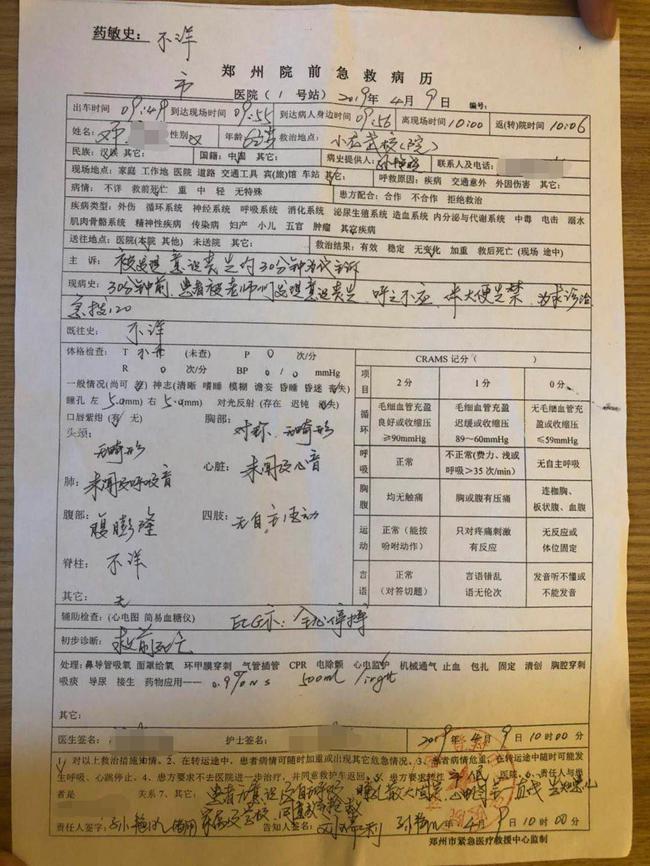 药敏史: 不详
郑州院前急救病历
市 医院（1号站）2019年4月9日 编号:
出车时间 09:49 到达现场时间 09:55 到达病人身边时间 09:56 离现场时间 10:00 返(转)院时间 10:06
姓名: 邓 性别 女 年龄 救治地点: 小 (院)
民族: 汉族 其它 国籍: 中国 其它 病史提供人: 联系人及电话:
现场地点: 家庭 工作地 医院 道路 交通工具 宾(旅)馆 车站 其它 呼救原因: 疾病 交通意外 外因伤害 其它
病情: 不详 救前死亡 重 中 轻 无特殊 患方配合: 合作 不合作 拒绝救治
疾病类型: 外伤 循环系统 神经系统 呼吸系统 消化系统 泌尿生殖系统 造血系统 内分泌与代谢系统 中毒 电击 溺水
肌肉骨骼系统 精神性疾病 传染病 妇产 小儿 五官 肿瘤 其它疾病
送往地点: 医院(本院 其他) 未送院 其它: 救治结果: 有效 稳定 无变化 加重 救后死亡 (现场 途中)
主 诉: 被发现意识丧失约30分钟为代主诉
现病史: 30分钟前, 患者被老师们发现意识丧失, 呼之不应, 伴大便失禁, 为求诊治
急拨120
既往史: 不详
体格检查: T (未查) P 0 次/分
R 0 次/分 BP 0/0 mmHg
一般情况(尚可 差) 神志(清晰 嗜睡 模糊 谵妄 昏睡 昏迷 丧失)
瞳孔 左 5.0(mm) 右 5.0(mm) 对光反射 (存在 迟钝 消失)
口唇紫绀 (有 无) 胸部: 对称、无畸形
头颈: 无畸形
心脏: 未闻及心音
肺: 未闻及呼吸音
腹部: 腹膨隆 四肢: 无自主活动
脊柱: 不详
其它: 无
CRAMS 记分 ( )
项目 2分 1分 0分
循环 毛细血管充盈良好或收缩压≥90mmHg 毛细血管充盈迟缓或收缩压89～60mmHg 无毛细血管充盈或收缩压≤59mmHg
呼吸 正常 不正常(费力、浅或呼吸＞35次/min) 无自主呼吸
胸腹 均无触痛 胸或腹有压痛 连枷胸、板状腹、血腹
运动 正常（能按吩咐动作） 只对疼痛刺激有反应 无反应或体位固定
言语 正常（对答切题） 言语错乱语无伦次 发音听不懂或不能发音
辅助检查: (心电图 简易血糖仪) ECG示: 全心停搏
初步诊断: 救前死亡
处理: 鼻导管吸氧 面罩给氧 环甲膜穿刺 气管插管 CPR 电除颤 心电监护 机械通气 止血 包扎 固定 清创 胸腔穿刺
吸痰 导尿 接生 药物应用—— 0.9% NS 500ml ivgtt
其它:
医生签名: 护士签名: 2019年4月9日10时00分
1、对以上救治措施知情。2、在转运途中，患者病情可随时加重或出现其它危急情况。3、患者病情危重，在转运途中随时可能发
生呼吸、心跳停止。4、患方要求不去医院进一步治疗，并同意救护车返回。5、患方要求转往 医院。6、责任人与患者
是 关系 7、其它: 患者意识 自主呼吸, 瞳孔散大固定, 心电图示
责任人签字: 告知人签名: 年4月9日10时00分
郑州市紧急医疗救援中心监制